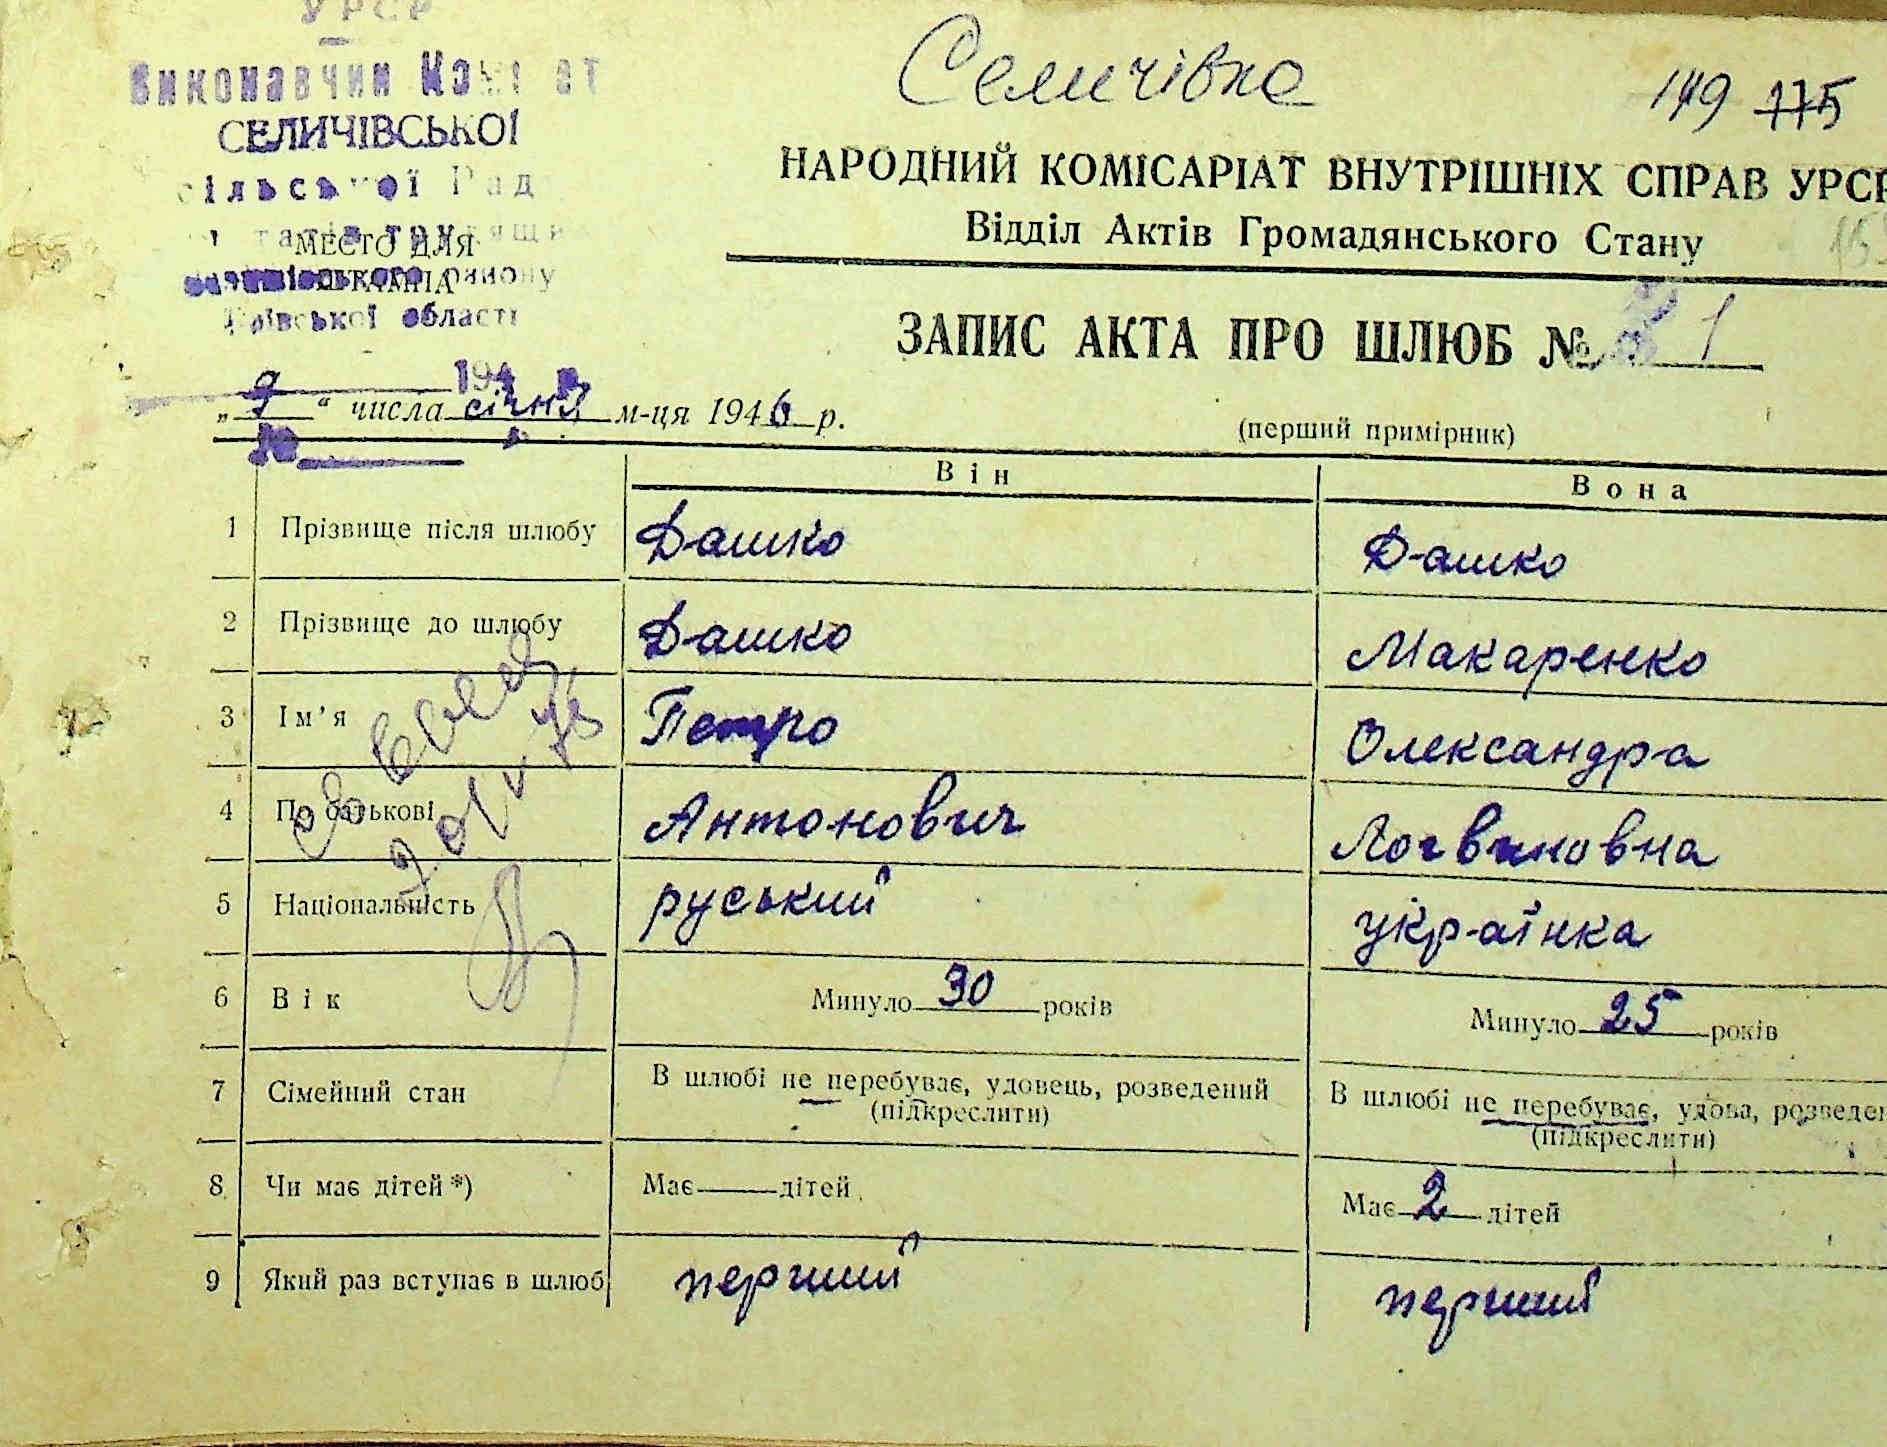 УРСР
Виконавчий Комітет
СЕЛИЧІВСЬКОЇ
сільської Рад
МЕСТО ДЛЯ
району
ської області
Селичівка
149 775
НАРОДНИЙ КОМІСАРІАТ ВНУТРІШНІХ СПРАВ УРСР
Відділ Актів Громадянського Стану
ЗАПИС АКТА ПРО ШЛЮБ № 1
194
„ 9 “ числа січня м-ця 1946 р.
(перший примірник)
№
Він Вона
1 Прізвище після шлюбу Дашко Дашко
2 Прізвище до шлюбу Дашко Макаренко
3 Ім’я Петро Олександра
4 По батькові Антонович Логвиновна
5 Національність руський українка
6 Вік Минуло 30 років Минуло 25 років
7 Сімейний стан В шлюбі не перебуває, удовець, розведений (підкреслити) В шлюбі не перебуває, удова, розведен (підкреслити)
8 Чи має дітей *) Має — дітей Має 2 дітей
9 Який раз вступає в шлюб перший перший